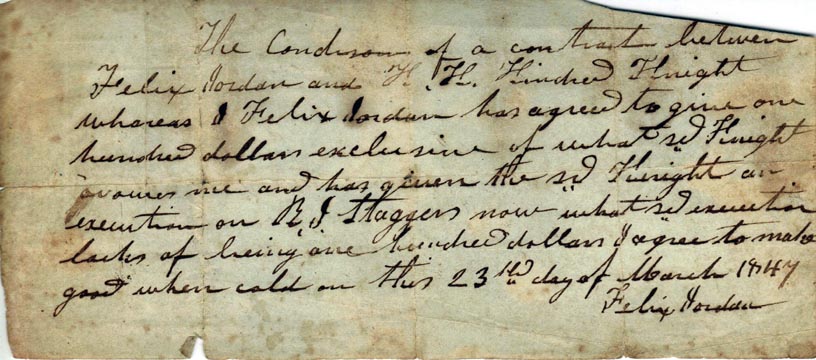 The Condison of a contract between
Felix Jordan and H. H. Kindred Knight
whareas I Felix Jordan has agreed to give one
hundred dollars exclusive of what sd Knight
owes me and has given the sd Knight an
execution on R J Staggers now what sd execution
lacks of being one hundred dollars I agree to make
good when cald on this 23rd day of March 1847
Felix Jordan